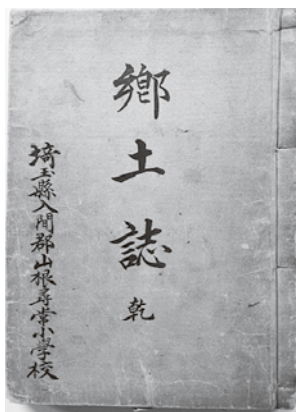 鄕土誌 乾
埼玉縣入間郡山根尋常小學校